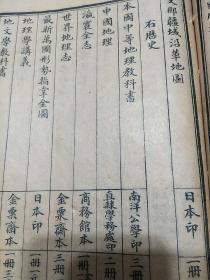 支那疆域沿革地圖
日本印
一冊
石歷史
本國中等地理教科書
南洋公學印
三冊
中國地理
直隸學務處印
二冊
瀛寰全志
商務館本
一冊
世界地理志
金粟齋本
三冊
最新萬國形勢指掌全圖
地理學講義
日本印
一冊
地文學教科書
金粟齋本
一冊